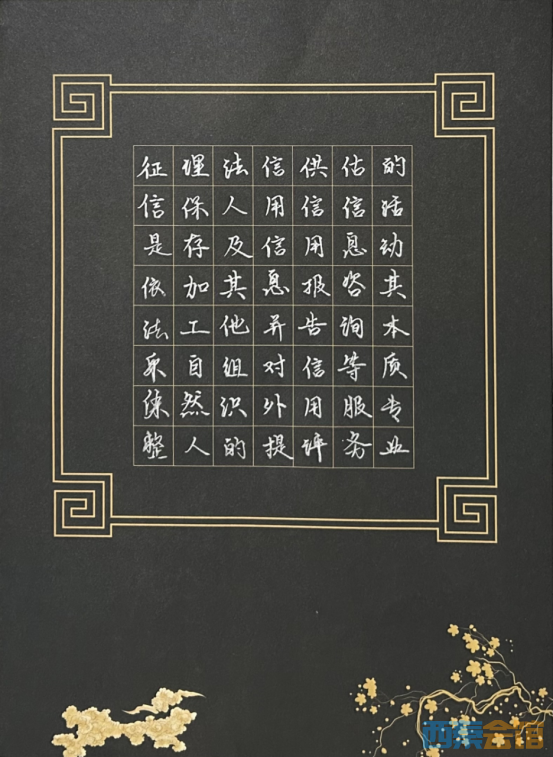 征信是依法采整
理保存加工自然人
法人及其他组织的
信用信息并对外提
供信用报告信用评
估信息咨询等服务
的活动其本质专业